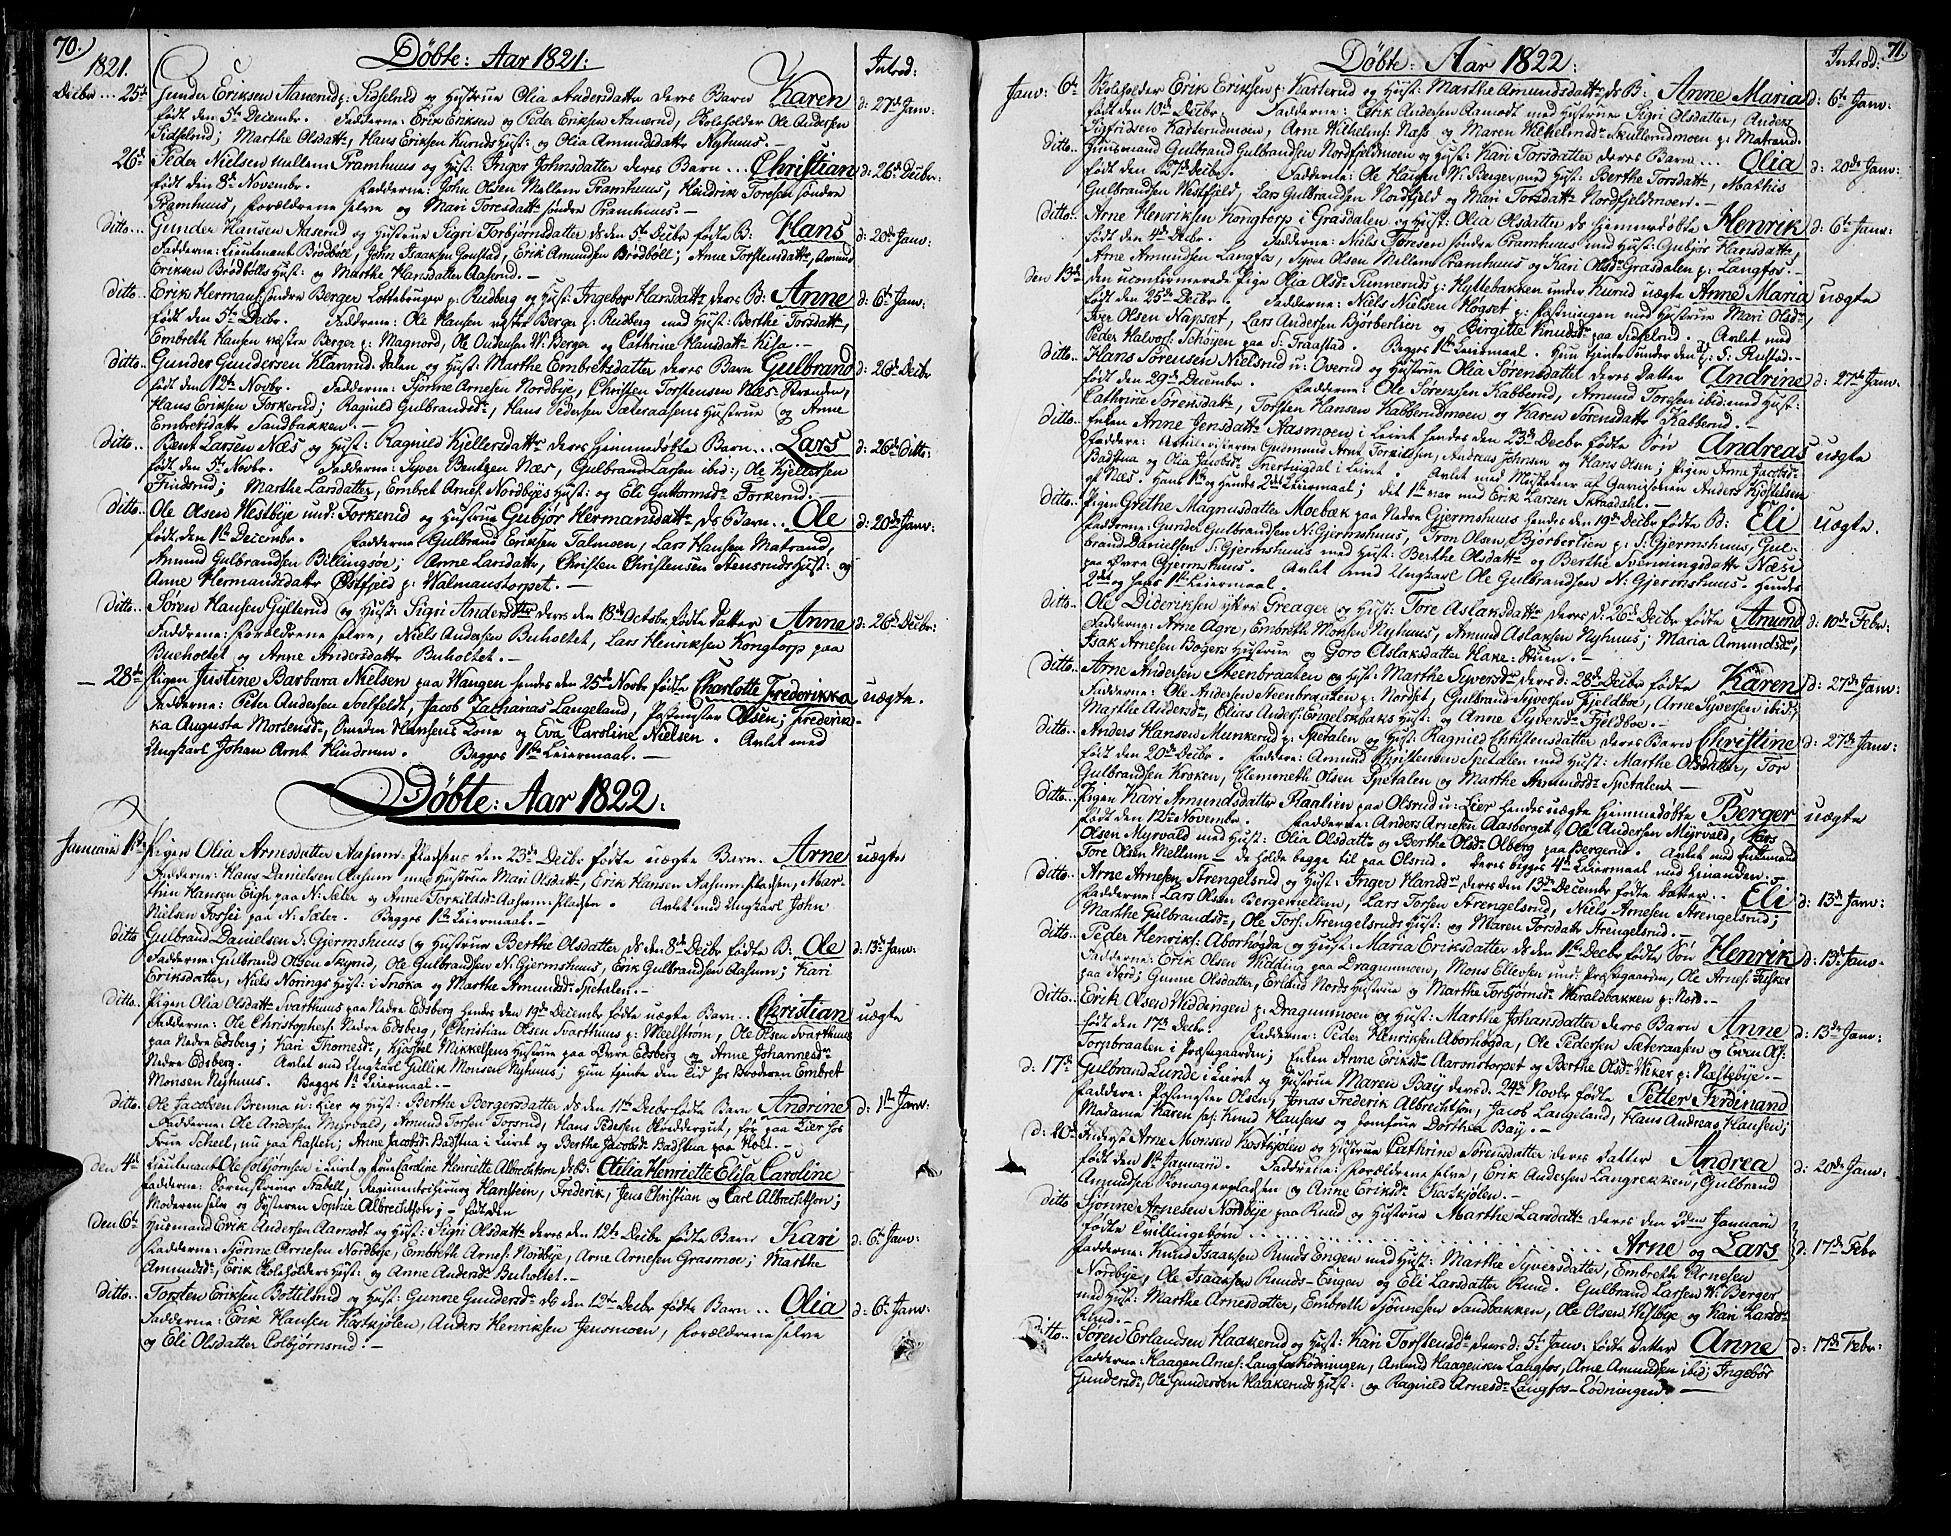 70.)
1821.
Døbte: Aar 1821:
Introd:
Decbr... 25de Gunder Eriksen Aanerud p: Sidselrud og Hustrue Olia Andersdatter deres Barn Karen d: 27de Janv:
født den 5te Decembr. Faddrene: Erik Eriksen og Peder Eriksen Aanerud, Skoleholder Ole Andersen
Sidselrud; Marthe Olsdatt, Hans Eriksen Kuruds Hust: og Olia Amundsdatter Nyhuus.-
26de Peder Nielsen mellem Pramhuus og Hust: Inger Johnsdatter deres Barn ... Christian d: 26de Decbr:
født den 8de Novembr. Fadderne: John Olsen Mellem Pramhuus, Hendrik Toresen søndre
Pramhuus, Forældrene selve og Mari Toresdatt søndre Pramhuus.-
ditto... Gunder Hansen Aaserud og Hustrue Sigri Torbjørnsdatter ds den 5te Decbr fødte B: Hans d: 20de Janv:
Fadderne: Lieutenant Brødbøll, John Isaaksen Goustad, Erik Amundsen Brødbøll; Anne Torstensdatt, Amund
Eriksen Brødbølls Hust: og Marthe Hansdatter Aaserud.-
ditto.. Erik Hermans: søndre Berger Lottebruger p: Rudberg og Hust: Ingebor Hansdatt deres B: Anne d: 6te Janv:
født den 5te Decbr. Faddrene: Ole Hansen vestre Berger p: Rudberg med Hust: Berthe Torsdatt,
Embreth Hansen vestre Berger p: Magnord, Ole Audensen W: Berger og Cathrine Hansdatt Kisa.-
ditto.. Gunder Gundersen Klanrud-dalen og Hust: Marthe Embretsdatter deres Barn Gulbrand d: 26de Decbr
født den 12te Novbr. Fadderne: Sjønne Arnesen Nordbye, Christen Torstensen Næs-Stranden,
Hans Eriksen Torkerud; Ragnild Gulbrandsdr, Hans Pedersen Sæteraasens Hustrue og Anne
Embretsdatter Sandbakken.-
ditto.. Bent Larsen Næs og Hust: Ragnild Kjellersdatter deres hjemmedøbte Barn... Lars d: 26de Ditto:
født den 5te Novbr. Fadderne: Syver Bentsen Næs, Gulbrand Larsen ibid:, Ole Kjellersen
Findsrud; Marthe Larsdatter, Embret Arnes: Nordbyes Hust: og Eli Guttormsdr Torkerud.-
ditto.. Ole Olsen Westbye und: Torkerud og Hustrue Gubjør Hermansdatt, ds Barn.. Ole d: 20de Janv:
født den 1te Decembr. Fadderne: Gulbrand Eriksen Talmoen, Lars Hansen Matrand,
Amund Gulbrandsen Billingsøe; Anne Larsdatter, Christen Christensen Stensruds Hust: og
Anne Hermansdatter Østfjeld p: Walmanstorpet.-
ditto.. Søren Hansen Gylterud og Hust: Sigri Andersdtter deres den 18de Octobr, fødte Datter Anne d: 26de Decbr:
Faddrene: Forældrene selve, Niels Andersen Buholtet, Lars Henriksen Kongtorp paa
Bueholtet og Anne Andersdatter Buholtet.-
- 28de Pigen Justine Barbara Nielsen paa Wangen hendes den 25de Novbr fødte Charlotte Frederikka uægte.
Fadderne: Peter Andersen Soelfeldt, Jacob Zacharias Langeland, Postmester Olsen; Frederik-
ka Augusta Mortensdr, Smeden Hansens Kone og Eva Caroline Nielsen. Avlet med
Ungkarl Johan Arnt Hindrum. Begges 1te Leiermaal.-
Døbte: Aar 1822:
Januarii 1te Pigen Olia Arnesdatter Aasum-Pladsens den 23de Decbr fødte uægte Barn. Arne uægte
Fadderne: Hans Danielsen Aasum med Hustrue Mari Olsdatt, Erik Hansen Aasum-Pladsen, Mar-
thin Hansen Eigh paa N: Sæter og Anne Torkildsdr Aasum-Pladsen. Avlet med Ungkarl John
Nielsen Fossie paa N: Sæter. Begges 1te Leiermaal.-
ditto Gulbrand Danielsen S: Gjermshuus og Hustrue Berthe Olsdatter ds den 8de Decbr fødte B: Ole d: 13de Janv:
Fadderne: Gulbrand Olsen Skyrud, Ole Gulbrandsen N: Gjermshuus, Erik Gulbrandsen Aasum; Kari
Eriksdatter, Niels Norings Hust: i Snoka og Marthe Amundsdr Spetalen.-
Ditto: Pigen Olia Olsdatt Svarthuus paa Nedre Edsberg hendes den 19de Decembr fødte uægte Barn.. Christian uægte
Fadderne: Ole Christophers: Nedre Edsberg, Christian Olsen Svarthuus p: Meelstrøm, Ole Olsen Svarthuus
paa Nedre Edsberg; Kari Thomesdr, Kjøstel Mikkelsens Hustrue paa Øvre Edsberg og Anne Johannesdr
Nedre Edsberg. Avlet med Ungkarl Gullik Monsen Nyhuus; Hun tjente den Tid hos Broderen Embret
Monsen Nyhuus. Begges 1te Leiermaal.-
ditto. Ole Jacobsen Brenna u: Lier og Hust: Berthe Bergersdatter ds den 11te Decbr fødte Barn Andrine d: 1te Janv:
Fadderne: Ole Andersen Myrvald, Amund Torsen Torsrud, Hans Pedersen Skreddergut, før paa Lier hos
Frue Scheel, nu paa Fasten; Anne Jacobsdr Badstua i Leiret og Berthe Jacobsdr Badstua paa Holt.-
den 4de Lieutenant Ole Colbjørnsen i Leiret og Frue Caroline Henriette Albrechtson ds B: Cecilia Henriette Elisa Caroline
Fadderne: Sorenskriver Stabell, Regimentschirurg Hanstein, Frederik, Jens Christian og Carl Albrechtson;
Moderen selv og Systeren Sophie Albrechtson;- født den
den 6te Huusmand Erik Andersen Aamodt og Hust: Sigri Olsdatt deres den 12te Decbr fødte Barn Kari d: 6te Janv:
Fadderne: Sjønne Arnesen Nordbye, Embreth Arnes: Nordbye, Arne Arnesen Grasmoe; Marthe
Amundsdr, Erik Skoleholders Hust: og Anne Andersdr Buholtet.-
ditto.. Torsten Eriksen Bottilsrud og Hust: Gunne Gundersdr ds den 12te Decbr fødte Barn.. Olia d: 6te Janv:
Fadderne: Erik Hansen Kaskjølen, Anders Henriksen Jensmoen, Forældrene selve
og Eli Olsdatter Colbjørnsrud.-
Døbte: Aar 1822:
Introd:
71.
Janv: 6te Skoleholder Erik Eriksen p: Karterud og Hust: Marthe Amundsdatt ds B: Anne Maria d: 6te Janv:
født den 10de Decbr. Fadderne: Erik Andersen Aamodt med Hustrue Sigri Olsdatter, Anders
Sigfridsen Katterudmoen, Arne Wilhelms: Næss og Maren Wilhelmsdr Skullerudmoen p: Matrand.
Ditto. Huusmand Gulbrand Gulbrandsen Nordfjeldmoen og Hust: Kari Torsdatter deres Barn ... Olia d: 20de Janv:
født den 27de Decbr. Fadderne: Ole Haagen W: Berger med Hust: Berthe Torsdatt, Mathis
Gulbrandsen Westfjeld, Lars Gulbrandsen Nordfjeld og Mari Torsdatt Nordfjeldmoen.-
ditto.. Arne Henriksen Kongtorp i Grasdalen og Hust: Olia Olsdatter ds hjemmedøbte Henrik d: 6te Janv:
født den 4de Decbr. Fadderne: Niels Toresen søndre Pramhuus med Hust: Gubjør Hansdatt
Arne Amundsen Langfos, Syver Olsen Mellem Pramhuus og Kari Olsdr Grasdalen p: Langfos.-
den 13de den uconfirmerede Pige Olia Olsdr Tunnerud p: Kyttebakken under Kurud uægte Anne Maria uægte
født den 25de Decbr. Fadderne: Niels Nielsen Høgset p: Fæstningen med Hustrue Mari Olsdr,
Iver Olsen Napsæt, Lars Andersen Bjørberlien og Birgitte Knudsdr paa Sidselrud. Avlet med
Peder Halvors: Schøyen paa S: Traastad. Begges 1te Leiermaal. Hun tjente under den T: p: S: Rustad.-
ditto.. Hans Sørensen Nielsrud u: Overud og Hustrue Olia Sørensdatter deres Datter Andrine d: 27de Janv.
født den 29de Decembr. Fadderne: Ole Sørensen Kabberud, Amund Torsen ibid: med Hust:
Cathrine Sørensdatt, Torsten Hansen Kabberudmoen og Karen Sørensdatter Kabberud.-
ditto. Enken Anne Jensdatt Aasmoen i Leiret hendes den 23de Decbr fødte Søn Andreas uægte
Faddrene: Artilleristerne Gudmund Arnt Torkildsen, Andreas Johnsen og Hans Olsen; Pigen Anne Jacobsdr
Badstua og Olia Jacobsdr Snertingdal i Leiret. Avlet med Musketeer af Garnisonen Anders Kjøstelsen
af Næs. Hans 1te og Hendes 2det Leiermaal; det 1te var med Erik Larsen Skraadahl.-
Ditto.. Pigen Grethe Magnusdatter Moebæk paa Nedre Gjermshuus hendes den 19de Decbr fødte B: Eli uægte.
Fadderne: Gunder Gulbrandsen N: Gjermshuus, Tron Olsen, Bjørberlien p: S: Gjermshuus, Gul-
brand Danielsen S: Gjermshuus med Hust: Berthe Olsdatt og Berthe Svenningsdatt Næse
paa Øvre Gjermshuus. Avlet med Ungkarl Ole Gulbrandsen N: Gjermshuus. Hendes
2det og hans 1te Leiermaal.
ditto. Ole Dideriksen ytre Greager og Hust: Tore Aslaksdatt deres d: 26de Decbr fødte Amund d: 10de Febr:
Fadderne: Arne Agre, Embreth Monsen Nyhuus, Amund Aslaksen Nyhuus; Maria Ammundsdr,
Isak Arnesen Bogers Hustrue og Goro Aslaksdatter Hake-Stuen.-
ditto.. Arne Andersen Steenbraaten og Hust: Marthe Syversdr deres d: 28de Decbr fødte Karen d: 27de Janv:
Fadderne: Ole Andersen Steenbraaten p: Nordset, Gulbrand Syversen Fjeldboe, Arne Syversen ibid:;
Marthe Andersdr, Elias Anders: Engelskbaks Hust: og Anne Syversdr Fjeldboe.-
ditto.. Anders Hansen Munkerud p: Spetalen og Hust: Ragnild Christensdatter deres Barn Christine d: 27de Janv:
født den 20de Decbr. Faddrene: Amund Christensen Spetalen med Hust: Marthe Olsdatter, Tor
Gulbrandsen Kroken, Clemmeth Olsen Spetalen og Marthe Amundsdr Spetalen.
ditto. Pigen Kari Amundsdatter Ranlien paa Olsrud u: Lier hendes uægte hjemmedøbte Berger uægte
født den 12te Novembr. Fadderne: Anders Arnesen Aasberget, Ole Andersen Myrvald, Lars
Olsen Myrvald med Hust: Olia Olsdatt og Berthe Olsdr Olberg paa Bergerud. Avlet med Enkemand
Tore Olsen Mellum - de holde begge til paa Olsrud. Deres begges 4de Leiermaal med hinanden.
ditto.. Arne Arnesen Strengelsrud og Hust: Inger Hansdr deres den 13de Decembr fødte Datter.. Eli d: 13de Janv:
Fadderne: Lars Olsen Bergemellem, Lars Torsen Strengelsrud, Niels Arnesen Strengelsrud;
Marthe Gulbrandsdr, Ole Tors: Strengelsruds Hust: og Maren Torsdatr Strengelsrud.-
ditto.. Peder Henriks: Aborhøgda og Hust: Maria Eriksdatter ds den 11te Decbr fødte Søn Henrik d: 13de Janv.
Fadderne: Erik Olsen Widding paa Dragummoen, Mons Ellevsen und: Præstegaarden, Ole Arnes: Fisker
paa Nord; Gunne Olsdatter, Erland Nords Hustrue og Marthe Torbjørnsdr Haraldbakken p: Nord.-
Ditto.. Erik Olsen Widdingen p: Dragummoen og Hust: Marthe Johansdatter deres Barn Anne d: 13de Janv:
født den 17de Decbr. Fadderne: Peder Henriksen Aborhøgda, Ole Pedersen Sæteraasen og Even Ols:
Torpbraaten i Præstegaarden; Enken Anne Eriksdr Aaronstorpet og Berthe Olsdr Wiker p: Næstebye.-
d: 17de Gulbrand Lunde i Leiret og Hustrue Maren Bay deres d: 29de Novbr fødte Petter Ferdinand
Faddere: Postmester Olsen, Jonas Frederik Albrechtson, Jacob Langeland, Hans Andreas Hansen;
Madame Karen sal: Knud Hansens og Jomfrue Dorthea Bay.-
d: 20de Inderst Arne Monsen Kaskjølen og Hustrue Cathrine Sørensdatter deres Datter Andrea d: 20de Janv:
født den 1te Januarii. Fadderne: Forældrene selve, Erik Andersen Langrekken, Gulbrand
Amundsen Romagerpladsen og Anne Eriksdr Kaskjølen.-
Ditto Sjønne Arnesen Nordbye paa Rund og Hustrue Marthe Larsdatt deres den 2den Januarii
fødte Tvillingebørn . . . . . . . . . . Arne og Lars d: 17de Febr
Fadderne: Knud Isaaksen Runds Engen med Hust: Marthe Syversdatter, Embreth Arnesen
Nordbye, Ole Isaaksen Runds-Engen og Eli Larsdatter Rund. Gulbrand Larsen W: Berger
med Hust: Marthe Arnesdatter, Embreth Sjønnesen Sandbakken, Ole Olsen Westbye og Kari Larsdr
Rund.-
ditto.. Søren Erlandsen Haakerud og Hust: Kari Torstensdr deres d: 5te Janv: fødte Datter Anne d: 17de Febr:
Fadderne: Haagen Arnes: Langfos Rødningen, Amund Haagensen Langfos, Arne Amundsen ibid; Ingebør
Gundersdr, Ole Gundersen Haakeruds Hust: og Ragnild Arnesdr Langfos-Rødningen.-